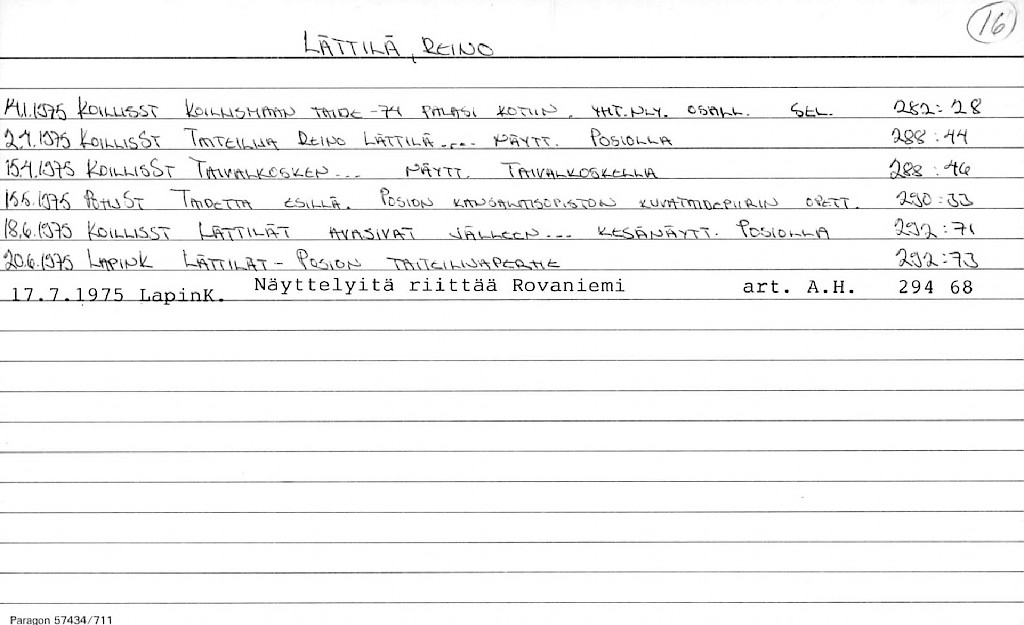 16
LÄTTILÄ, REINO
14.1.1975 KOILLISST KOILLISMAAN TAIDE -74 PALASI KOTIIN. YHT.NLY. OSALL. SEL. 282:28
2.4.1975 KOILLISST TAITEILIJA REINO LÄTTILÄ.... NÄYTT. POSIOLLA 288:44
15.4.1975 KOILLISST TAIVALKOSKEN... NÄYTT. TAIVALKOSKELLA 288:46
15.5.1975 POHJST TAIDETTA ESILLÄ. POSION KANSALAISOPISTON KUVATAIDEPIIRIN OPETT. 290:33
18.6.1975 KOILLISST LÄTTILÄT AVASIVAT JÄLLEEN... KESÄNÄYTT. POSIOLLA 292:71
20.6.1975 LAPINK LÄTTILÄT - POSION TAITEILIJAPERHE 292:73
17.7.1975 LapinK. Näyttelyitä riittää Rovaniemi art. A.H. 294 68
Paragon 57434/711